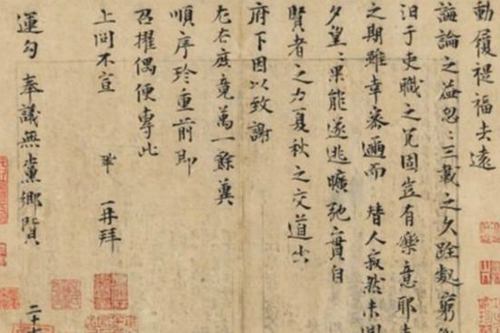 動履禔福去遠
誨論之益忽〻三載之久跧處窮
汩于吏職之冗固豈有樂意耶
之期雖幸密邇而替人寂然未
夕望〻果能遂逃曠弛實自
賢者之力夏秋之交道出
府下因以致謝
左右庶竟萬一餘冀
順序珍重前即
召擢偶便專此
上問不宣 鞏 再拜
運勾奉議無黨鄉賢
二十